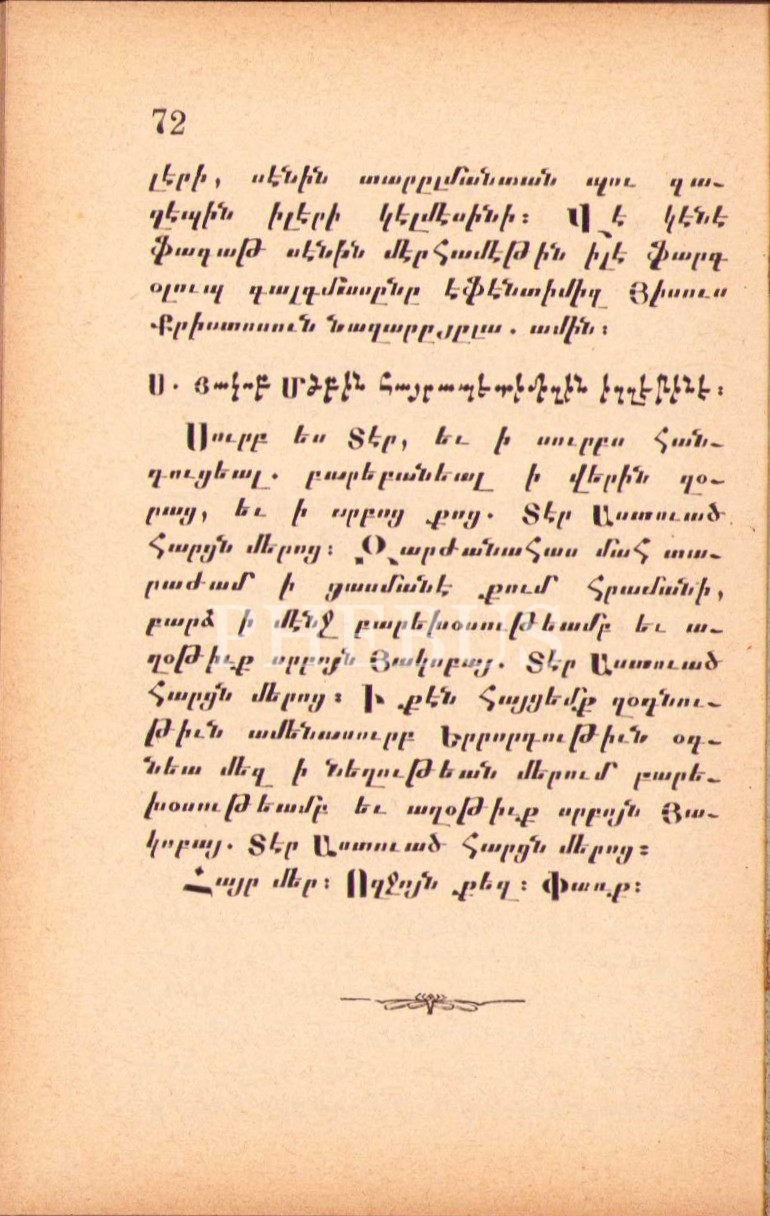 72
լէրի, սէնին տարըլմանտան պու զա-
ղէպին իլէրի կէլմէսինի: Վէ կէնէ
ֆաղաթ սէնին մէրհամէթին իլէ ֆարգ
օլուպ գալգմասընը էֆէնտիմիզ Յիսուս
Քրիստոսուն նազարըյըլա. ամին:
Ս. Յակոբ Մծբին հայրապէտիմիզին իզզէթինէ:
Սուրբ ես Տէր, եւ ի սուրբս հան-
գուցեալ. բարեբանեալ ի վերին զօ-
րաց, եւ ի սրբոց քոց. Տէր Աստուած
հարցն մերոց: Զարժանահաս մահ տա-
րաժամ ի ցասմանէ քում հրամանի,
բարձ ի մէնջ բարեխօսութեամբ եւ ա-
ղօթիւք սրբոյն Յակոբայ. Տէր Աստուած
հարցն մերոց: Ի քէն հայցեմք զօգնու-
թիւն ամենասուրբ Երրորդութիւն օգ-
նեա մեզ ի նեղութեան մերում բարե-
խօսութեամբ եւ աղօթիւք սրբոյն Յա-
կոբայ. Տէր Աստուած հարցն մերոց:
Հայր մեր: Ողջոյն քեզ: Փառք:
PHEBUS